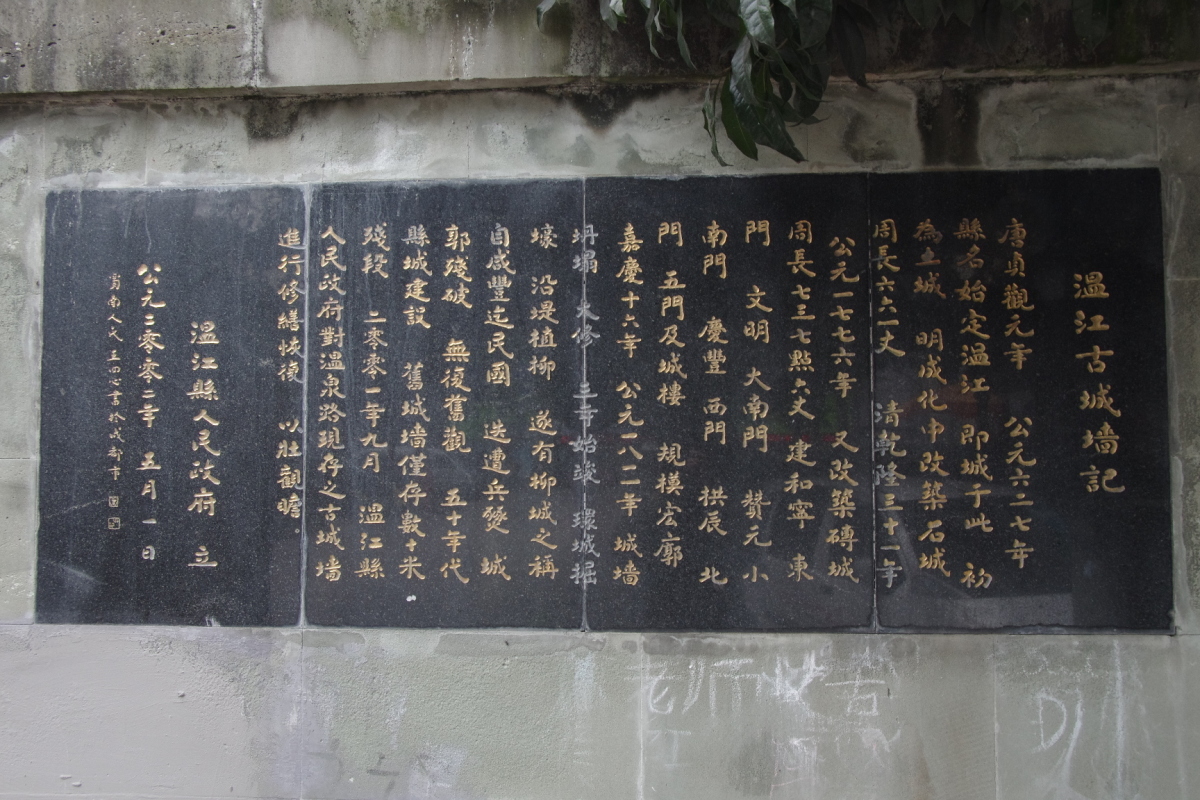 温江古城墙記
唐貞觀元年 公元六二七年
縣名始定温江 即城于此 初
為土城 明成化中改築石城
周長六六一丈 清乾隆三十一年
公元一七七六年 又改築磚城
周長七三七點六丈 建和寧 東
門 文明 大南門 贊元 小
南門 慶豐 西門 拱辰 北
門 五門及城樓 規模宏廓
嘉慶十六年 公元一八一二年 城墙
坍塌 大修 三年始竣 環城掘
壕 沿堤植柳 遂有柳城之稱
自咸豐迄民國 迭遭兵燹 城
郭殘破 無復舊觀 五十年代
縣城建設 舊城墙僅存數十米
殘段 二零零一年九月 温江縣
人民政府對温泉路現存之古城墙
進行修繕恢復 以壯觀瞻.
温江縣人民政府 立
公元二零零二年 五月一日
書於成都市
老师
古